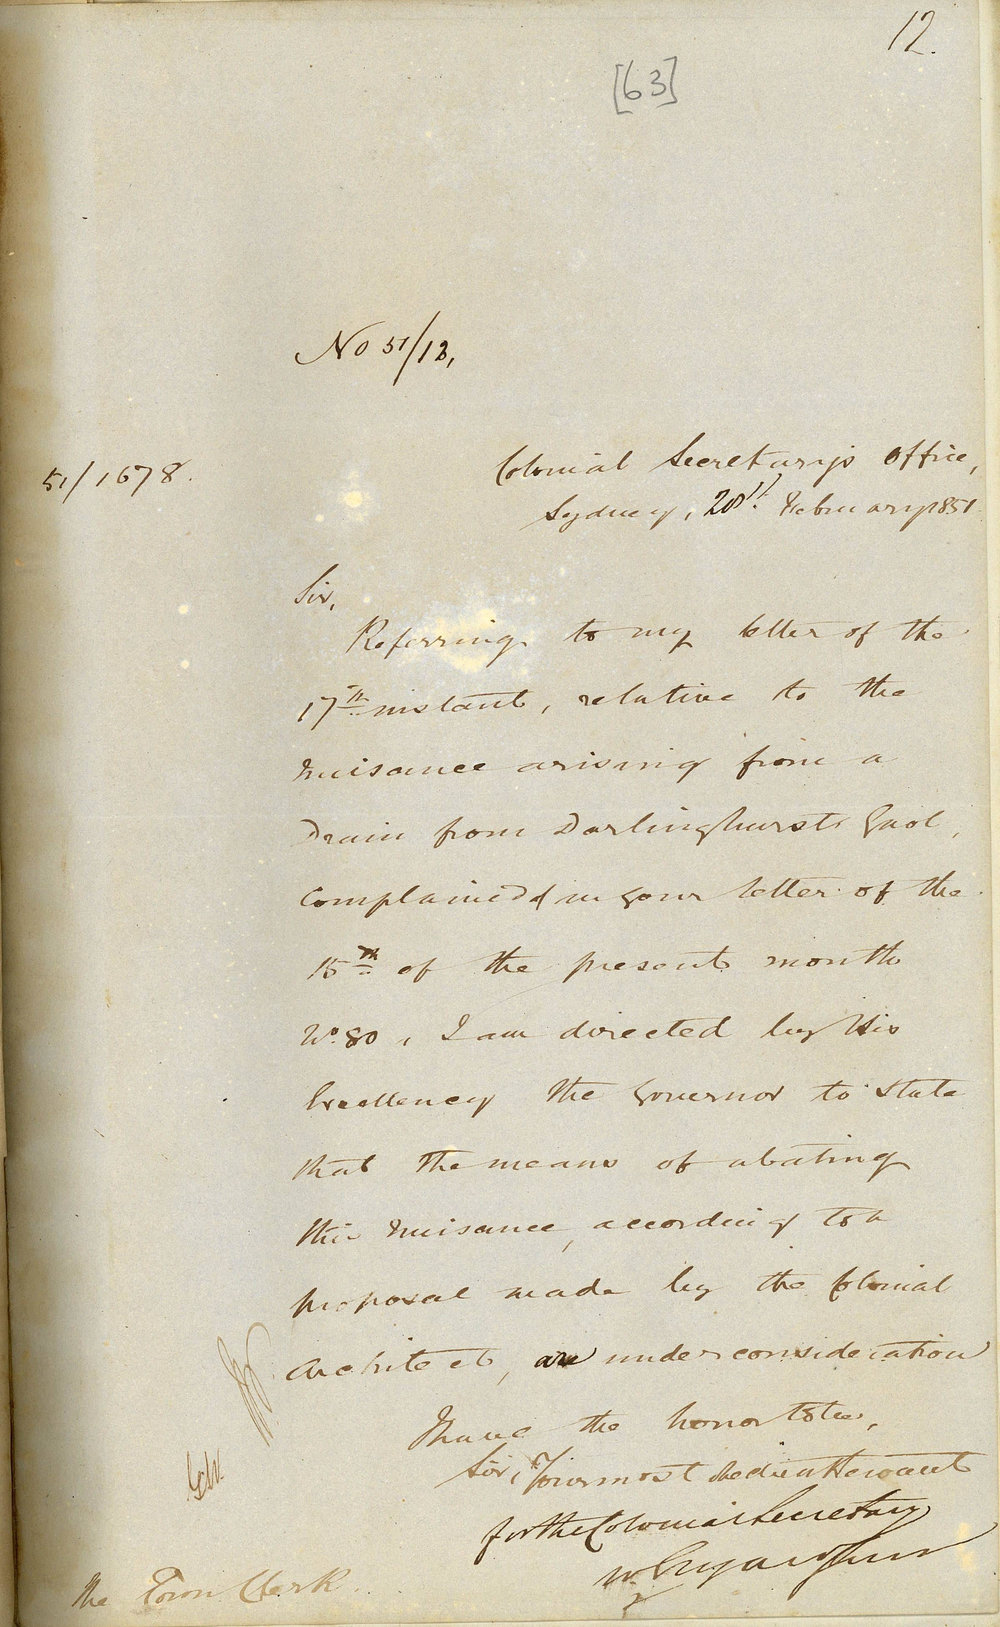 12.
[63]
No 51/12,
51/1678.
Colonial Secretary's Office,
Sydney, 20th February 1851
Sir,
Referring to my letter of the
17th instant, relative to the
nuisance arising from a
Drain from Darlinghurst Gaol,
complained of in your letter of the
15th of the present month
No. 80, I am directed by His
Excellency the Governor to state
that the means of abating
this nuisance, according to a
proposal made by the Colonial
Architect, are under consideration
I have the honor to be,
Sir, Your most obedient Servant
for the Colonial Secretary
W
The Town Clerk